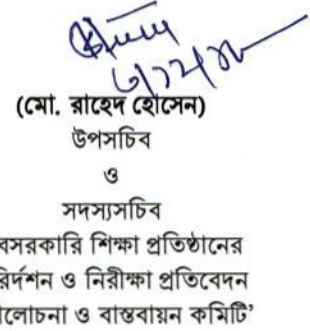 (মো. রাহেদ হোসেন)
উপসচিব
ও
সদস্যসচিব
বসরকারি শিক্ষা প্রতিষ্ঠানের
রিদর্শন ও নিরীক্ষা প্রতিবেদন
লোচনা ও বাস্তবায়ন কমিটি’